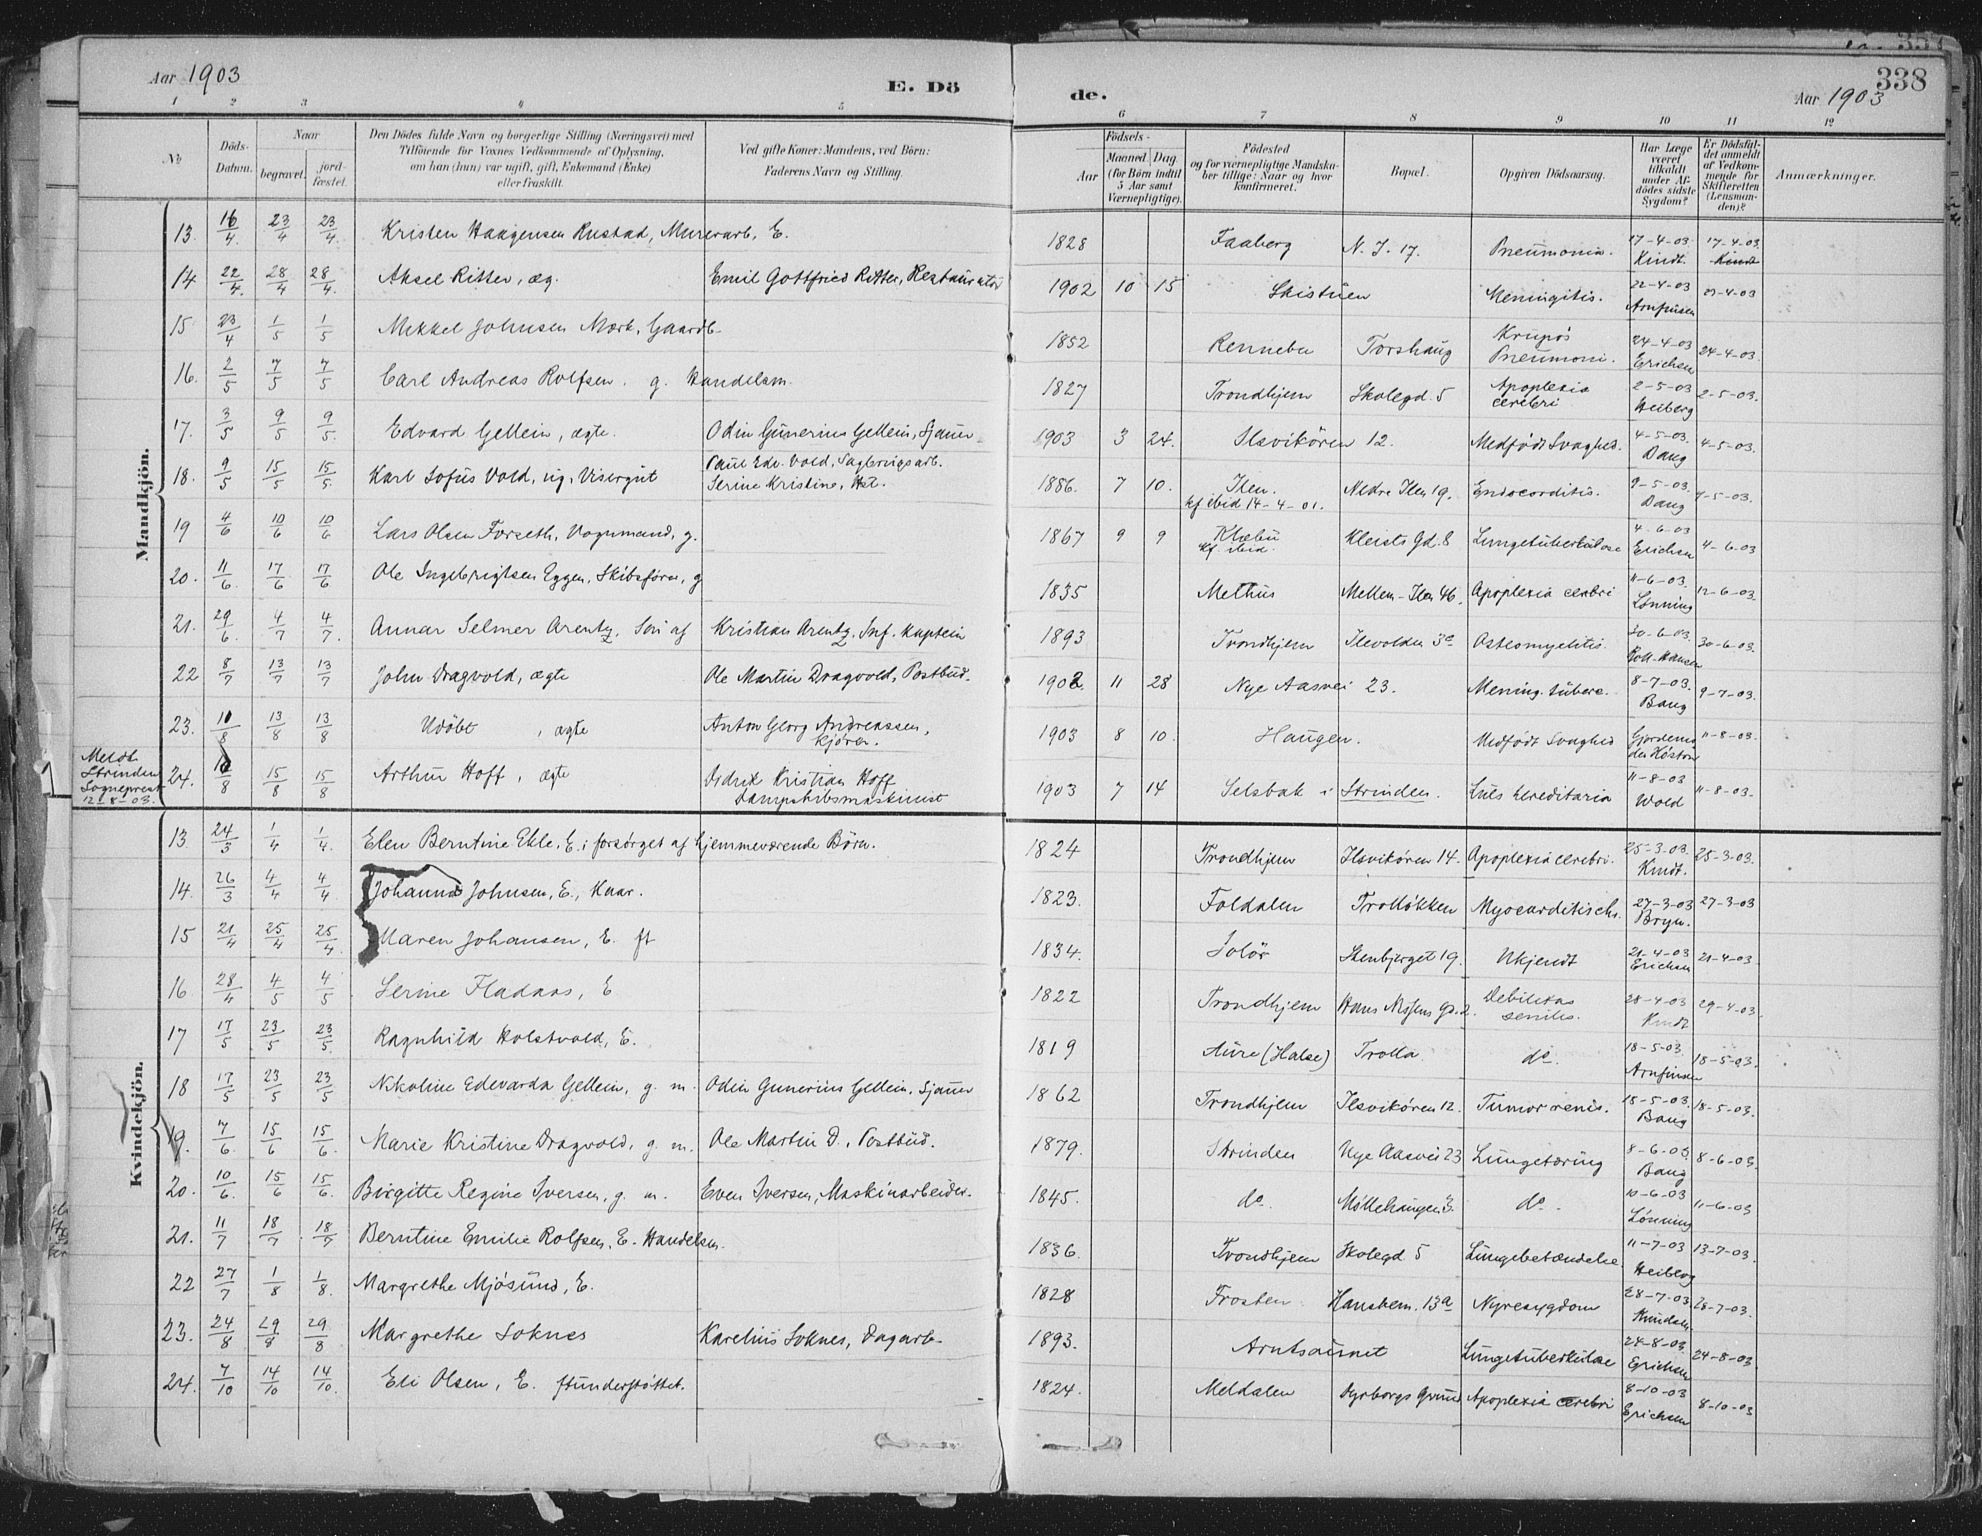 Aar 1903
E. Dö
de.
Aar 1903
338
1 2 3 4 5 6 7 8 9 10 11 12
No
Döds-Datum.
Naar
begravet.
jord-fæstet.
Den Dödes fulde Navn og borgerlige Stilling (Næringsvei) med
Tilföiende for Voxnes Vedkommende af Oplysning,
om han (hun) var ugift, gift, Enkemand (Enke)
eller fraskilt.
Ved gifte Koner: Mandens, ved Börn:
Faderens Navn og Stilling.
Födsels-
Aar
Maaned. Dag.
(for Börn indtil
5 Aar samt
Værnepligtige).
Födested
og for værnepligtige Mandska-
ber tillige: Naar og hvor
konfirmeret.
Bopæl.
Opgiven Dödsaarsag.
Har Læge
været
tilkaldt
under Af-
dödes sidste
Sygdom?
Er Dödsfal-
det anmeldt
af Vedkom-
mende for
Skifteretten
(Lensman-
den)?
Anmærkninger.
Mandkjön.
13. 16/4 23/4 23/4. Kristen Haagensen Rustad, Murerarb, E. 1828 Faaberg N. I. 17. Pneumonia. 17-4-03. Kindt. 17-4-03. Kindt
14 22/4. 28/4 28/4. Aksel Ritter, æg. Emil Gottfried Ritter, Restauratør 1902 10 15 Skistuen Meningitis. 22-4-03 Arnfinsen 23-4-03
15 23/4 1/5 1/5 Mikkel Johnsen Mork, Gaardb. 1852 Rennebu Torshaug Krupøs Pneumoni. 24-4-03 Erichsen 24-4-03.
16. 2/5 7/5 7/5 Carl Andreas Rolfsen. g. Handelsm. 1827 Trondhjem Skolegd. 5 Apoplexia cerebri 2-5-03 Heiberg 2-5-03.
17. 3/5 9/5 9/5. Edvard Gellein, ægte. Odin Gunerius Gellein, Sjauer 1903 3 24. Ilsvikören 12. Medfödt Svaghed. 4-5-03. Bang 4-5-03.
18. 9/5 15/5 15/5. Karl Sofus Vold, ug, Visergut Paul Edv. Vold, Sagbrugsarb. Serine Kristine, Hst. 1886. 7 10. Ilen. kf ibid 14-4-01. Nedre Ilen 19. Endocorditis. 9-5-03. Bang 9-5-03.
19 4/6 10/6 10/6 Lars Olsen Forseth, Vognmand, g. 1867 9 9 Klæbu kf. ibid. Kleists Gd. 8 Lungetuberkulose 4-6-03 Erichsen 4-6-03
20. 11/6. 17/6 17/6 Ole Ingebrigtsen Eggen, Skibsförer, g 1835 Melhus Mellem-Ilen 46. Apoplexia cerebri 11-6-03. Lønning 12-6-03.
21. 29/6. 4/7 4/7. Annar Selmer Arentz, Sön af Kristian Arentz, Inf. Kaptein 1893 Trondhjem Ilevolden 3c Osteomyelitis. 30-6-03. Roll-Hansen 30-6-03.
22 8/7 13/7 13/7 John Dragvold, ægte Ole Martin Dragvold, Postbud. 1902. 11 28 Nye Aasvei 23. Mening. tuberc. 8-7-03. Bang 9-7-03.
23. 10/8 13/8 13/8 Udöbt, ægte Anton Georg Andreassen, Kjörer. 1903 8 10. Haugen. Medfödt Svaghed Gjordemo der Höstön 11-8-03.
Meldt Strinden Sogneprest 12-8-03.
24. 10/8 15/8 15/8 Arthur Hoff, ægte Didrik Kristian Hoff Dampskibsmaskinist 1903 7 14 Selsbak i Strinden. Lues hereditaria 11-8-03 Wold 11-8-03.
Kvindekjön.
13. 24/3 1/4 1/4. Elen Berntine Ekle, E. i forsørget af hjemmeværende Börn. 1824 Trondhjem Ilsvikören 14. Apoplexia cerebri. 25-3-03. Kindt. 25-3-03.
14. 26/3 4/4 4/4 Johanna Johnsen, E., Haar. 1823. Foldalen Trolløkken Myocarditis ch. 27-3-03 Bryn. 27-3-03
15 21/4 25/4 25/4. Maren Johansen, E. ft 1834. Solör Stenbjerget 19. Ukjendt 21-4-03 Erichsen 21-4-03.
16 28/4 4/5 4/5 Serine Fladaas, E 1822 Trondhjem Hans Nissens Gd. 2. Debilitas senilis. 28-4-03 Kindt 29-4-03.
17 17/5 23/5 23/5. Ragnhild Holstvold, E. 1819 Aure (Halse) Trolla do. 18-5-03. Arnfinsen 18-5-03.
18 17/5 23/5 23/5 Nikoline Edevarda Gellein, g. m. Odin Gunerius Gellein, Sjauer 1862 Trondhjem Ilsvikören 12. Tumor renis. 18-5-03. Bang 18-5-03.
19. 7/6. 15/6 15/6. Marie Kristine Dragvold, g. m. Ole Martin D., Postbud. 1879. Strinden Nye Aasvei 23 Lungetæring 8-6-03 Bang 8-6-03.
20. 10/6. 15/6 15/6 Birgitte Regine Iversen, g. m. Even Iversen, Maskinarbeider. 1845. do. Möllehaugen 3. do. 10-6-03 Lønning 11-6-03
21. 11/7 18/7 18/7 Berntine Emilie Rolfsen, E. Handelsm. 1836. Trondhjem Skolegd. 5 Lungebetændelse 11-7-03 Heiberg 13-7-03.
22 27/7 1/8 1/8. Margrethe Mjösund, E. 1828 Frosten Hanskem. 13a Nyresygdom 28-7-03. 28-7-03.
23. 24/8 29/8 29/8 Margrethe Soknes Karelius Soknes, Dagarb. 1893. Arntsaunet Lungetuberkulose 24-8-03. Erichsen 24-8-03.
24. 7/10 14/10 14/10. Eli Olsen, E. ftunderstøttet. 1824. Meldalen Dyrborgs Grund Apoplexia cerebri 8-10-03 Erichsen 8-10-03